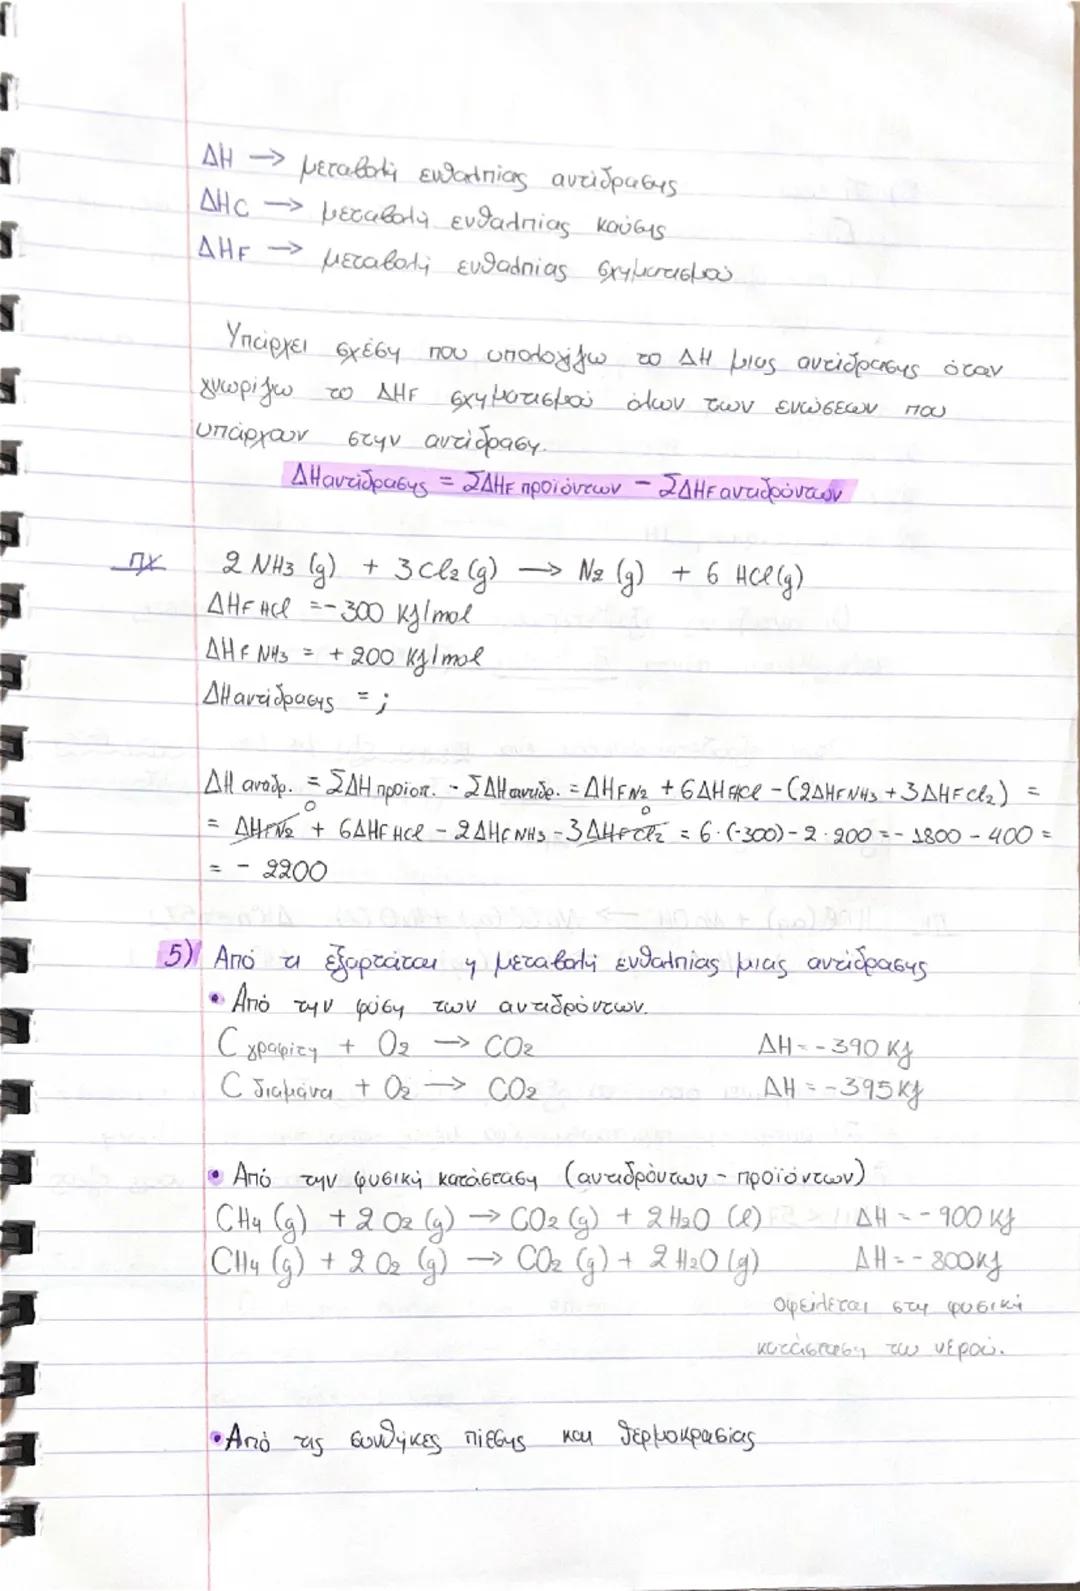 ΔH → μεταβολή ενθαλπίας αντίδρασης
ΔHC → μεταβολή ενθαλπίας καύσης
ΔHF → μεταβολή ενθαλπίας σχηματισμού
Υπάρχει σχέση που υπολογίζω το ΔH μιας αντίδρασης όταν
γνωρίζω το ΔHF σχηματισμού όλων των ενώσεων που
υπάρχουν στην αντίδραση.
ΔHαντίδρασης = ΣΔHF προϊόντων - ΣΔHF αντιδρόντων
πχ 2 NH3 (g) + 3Cl2 (g) → N2 (g) + 6 HCl (g)
ΔHF HCl = -300 KJ/mol
ΔHF NH3 = +200 KJ/mol
ΔHαντίδρασης = ;
ΔH αντιδρ. = ΣΔH προϊοντ. - ΣΔH αντιδρ. = ΔHF N2 + 6ΔHF HCl - (2ΔHF NH3 + 3ΔHF Cl2) =
0 0
= ΔHF N2 + 6ΔHF HCl - 2ΔHF NH3 - 3ΔHF Cl2 = 6·(-300) - 2·200 = -1800 - 400 =
= - 2200
5) Από τι εξαρτάται η μεταβολή ενθαλπίας μιας αντίδρασης
• Από την φύση των αντιδρόντων.
C γραφίτη + O2 → CO2 ΔH = -390 KJ
C διαμάντι + O2 → CO2 ΔH = -395 KJ
• Από την φυσική κατάσταση (αντιδρόντων - προϊόντων)
CH4 (g) + 2O2 (g) → CO2 (g) + 2H2O (l) ΔH = -900 KJ
CH4 (g) + 2O2 (g) → CO2 (g) + 2H2O (g) ΔH = -800KJ
Οφείλεται στη φυσική
κατάσταση του νερού.
• Από τις συνθήκες πίεσης και θερμοκρασίας